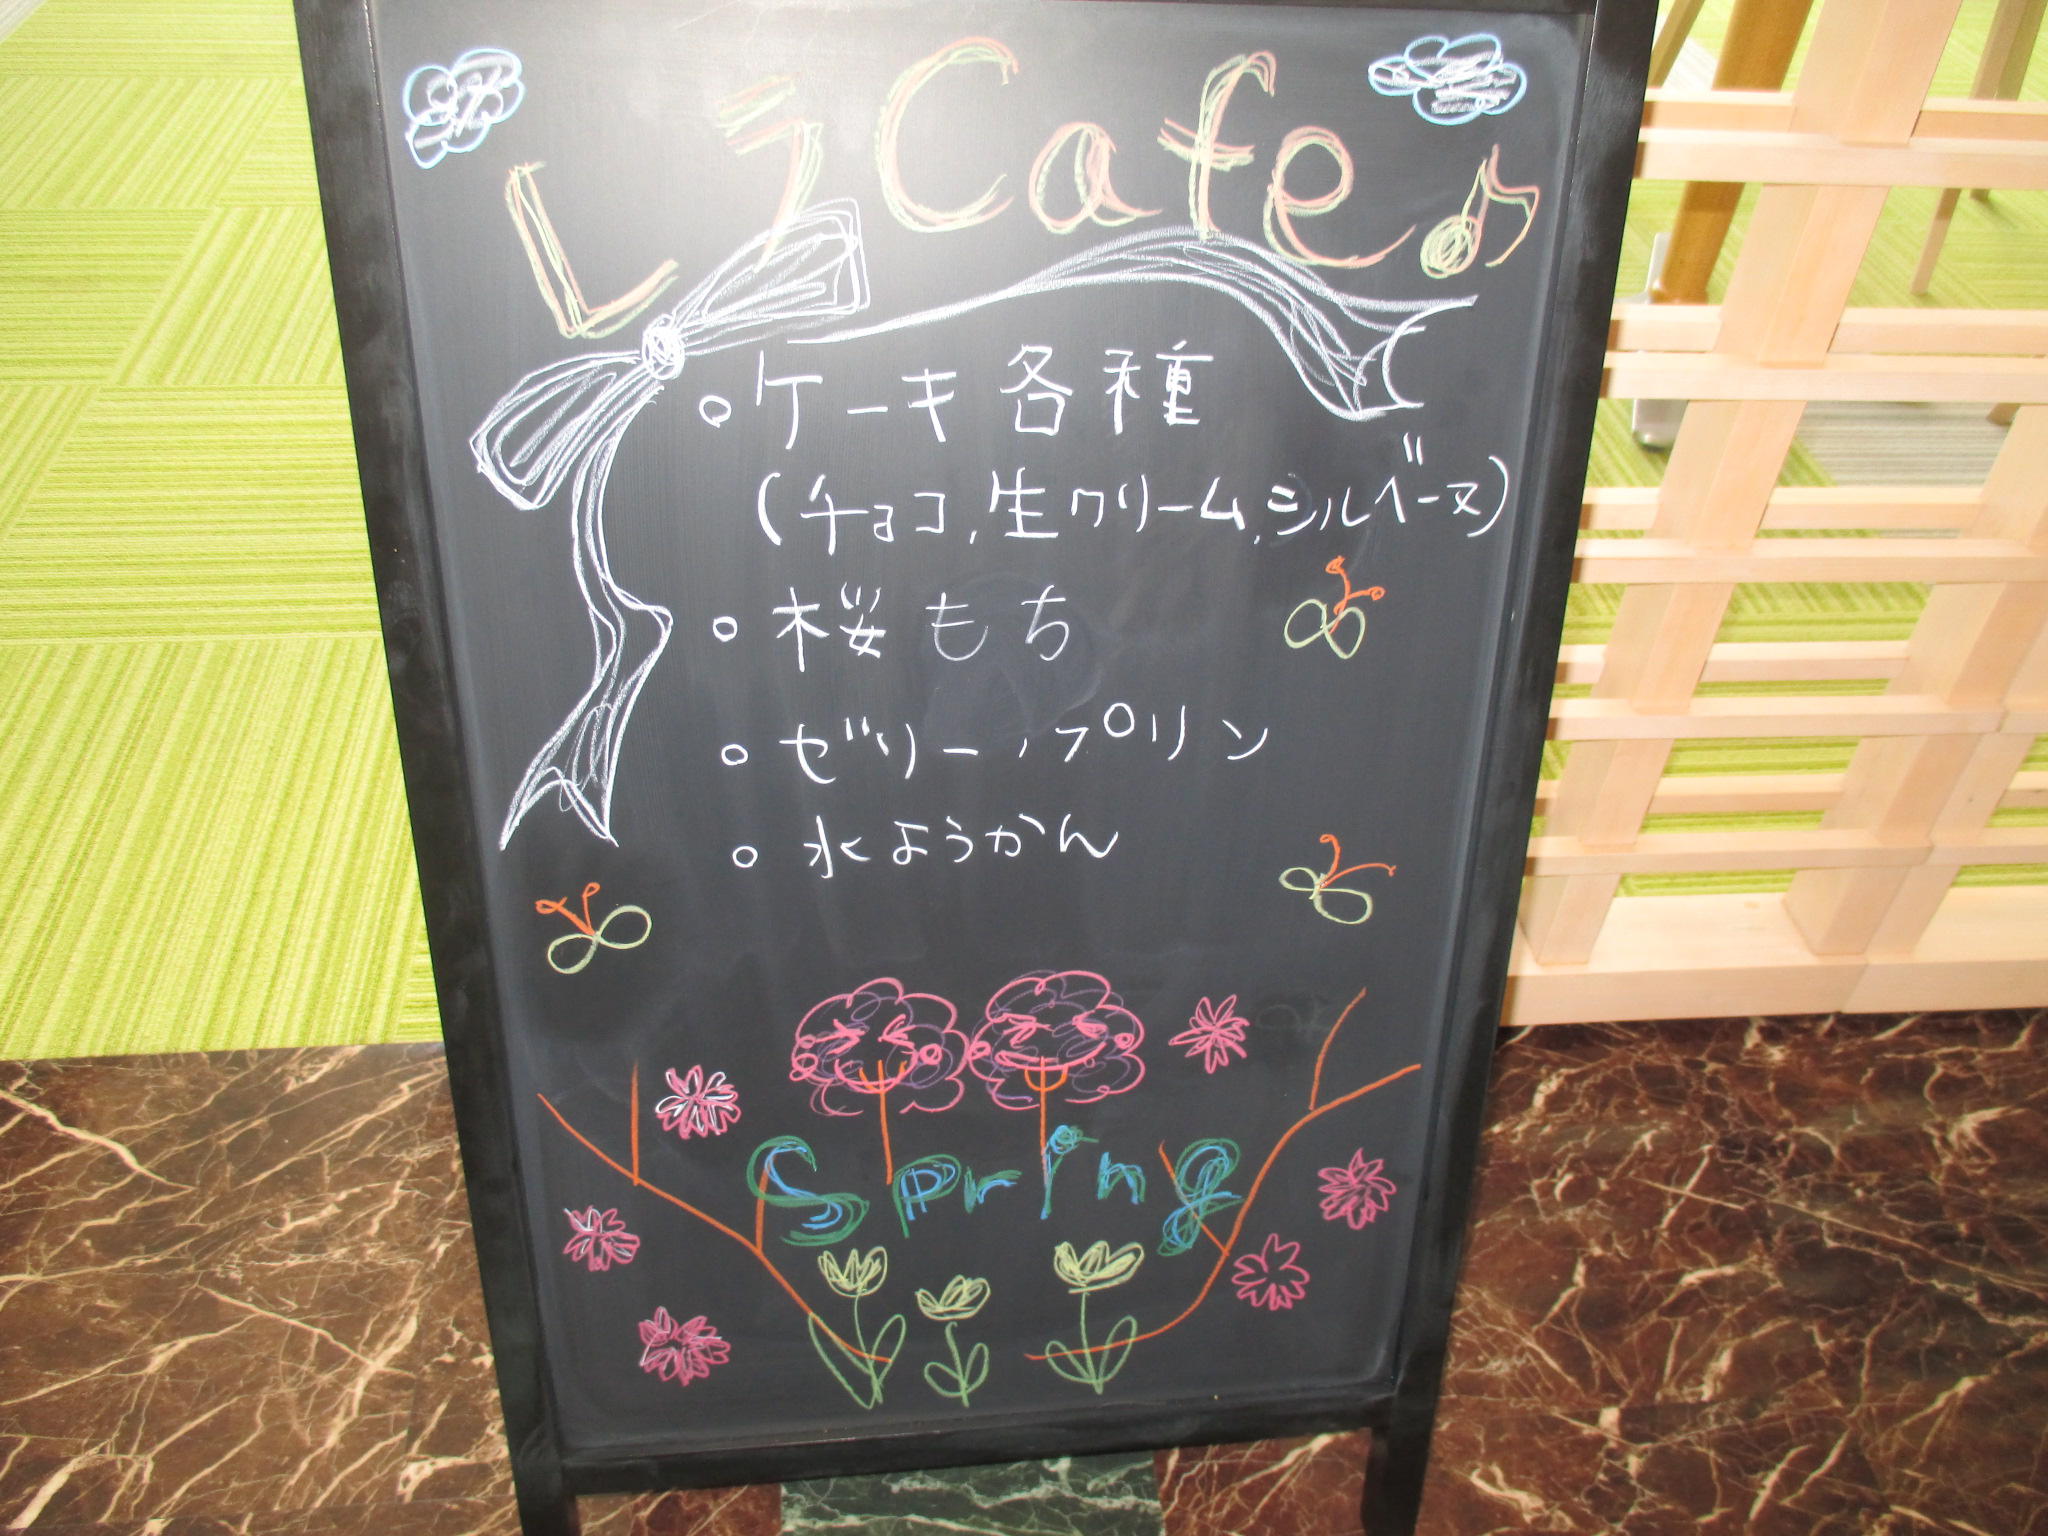 レラCafe♪
・ケーキ各種
(チョコ,生クリーム,シルベーヌ)
・桜もち
・ゼリー、プリン
・水ようかん
Spring